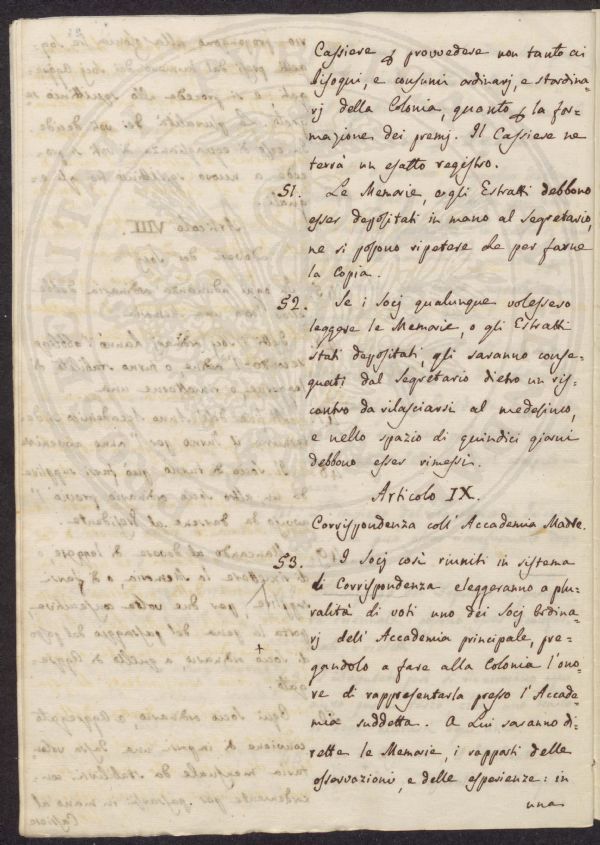 Cassiere p provvedere non tanto ai
bisogni, e consumi ordinarj, e stordina=
rj della Colonia, quanto p la for=
mazione dei premj. Il Cassiere ne
terrà un esatto registro.
51. Le Memorie, e gli Estratti debbono
esser depositati in mano al segretario,
ne si possono ripetere che per farne
la Copia.
52. Se i Socj qualunque volessero
leggere le Memorie, o gli Estratti
stati depositati, gli saranno conse=
gnati dal Segretario dietro un ris=
contro da rilasciarsi al medesimo,
e nello spazio di quindici giorni
debbono esser rimessi.
Articolo IX.
Corrispondenza coll' Accademia Madre.
53. I Socj così riuniti in sistema
di Corrispondenza eleggeranno a plu=
ralità di voti uno dei Socj Ordina=
rj dell' Accademia principale, pre=
gandolo a fare alla Colonia l'ono=
re di rappresentarla presso l'Accade=
mia suddetta. A Lui saranno di=
rette le Memorie, i rapporti delle
osservazioni, e delle esperienze: in
una